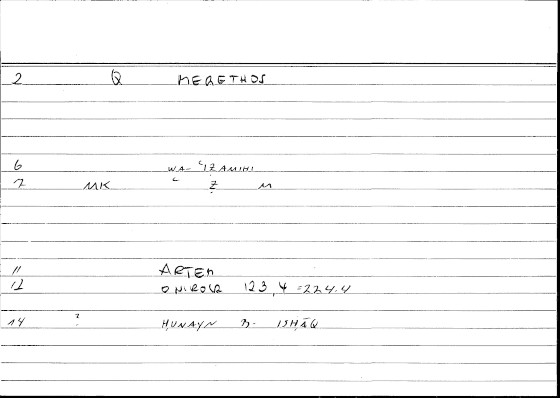 2 Q MEGETHOS
6 WA- ʿIẒAMIHI
7 MK ʿ Ẓ M
11 ARTEM
12 ONIROCR 123,4 = 224.4
14 ? ḤUNAYN B- ISḤĀQ